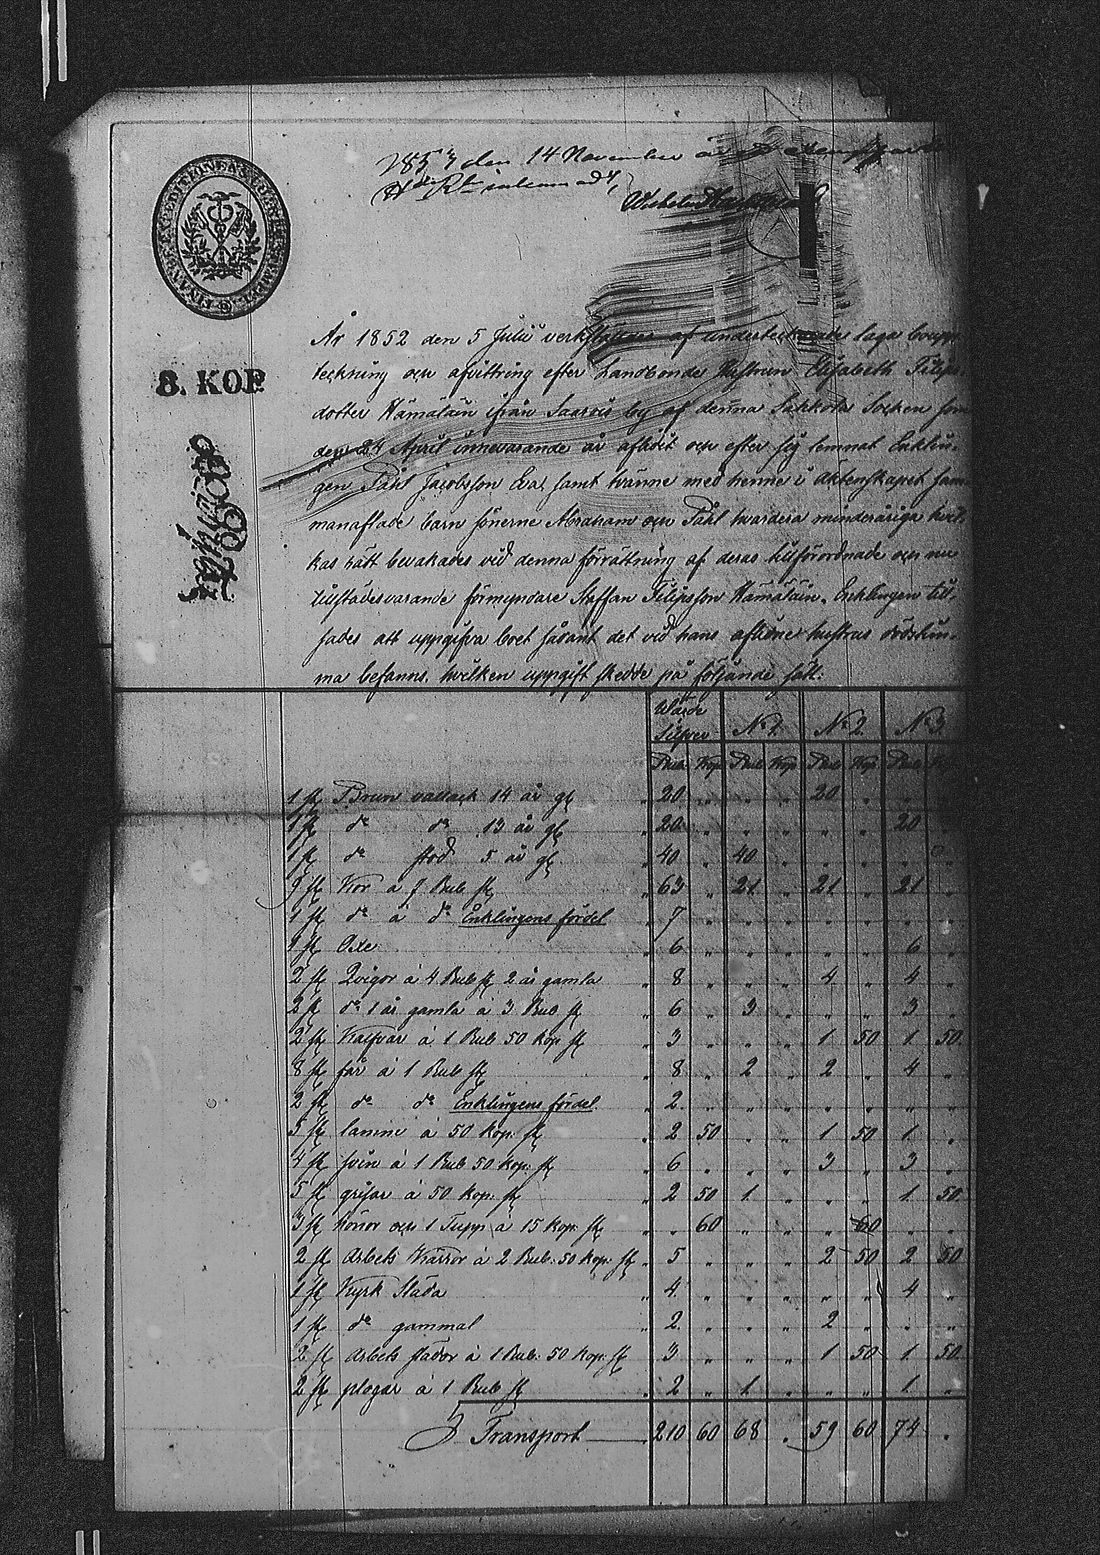 1853 den 14 November
inlemnad,
Wilhelm
FINANS EXPEDITIONENS
8. KOP.
År 1852 den 5 Julii verkställdes af undertecknade laga bouppteckning
teckning och afvittring efter Landbonde Hustrun Elisabeth Filips
dotter Hämäläin ifrån Saarois by af denna Sakkola Socken som
den 24 April innevarande år aflidit och efter sig lemnat Enklin-
gen Påhl Jacobsson samt tvänne med henne i äktenskapet sam
manaflade barn sönerne Abraham och Påhl hvardera minderåriga hvil-
kas rätt bevakades vid denna förrättning af deras tillförordnade och nu
tillstädesvarande förmyndare Staffan Filipsson Hämäläin. Enklingen till-
sades att uppgifva boet sådant det vid hans aflidne hustrus dödstim-
ma befanns. hvilken uppgift skedde på följande sätt:
Wärde Silfver No 1. No 2. No 3.
Rub. Kop. Rub. Kop. Rub. Kop. Rub.
1 st Brun vallack 14 år gl " 20 " " " 20 " " "
1 st do do 13 år gl " 20 " " " " " 20 "
1 st do stod 5 år gl " 40 " 40 " " " " "
9 st Kor à 7 Rub st " 63 " 21 " 21 " 21 "
1 st do à do Enklingens fördel " 7 " " " " " " "
1 st Oxe " 6 " " " " " 6 "
2 st Qvigor à 4 Rub st 2 år gamla " 8 " " " 4 " 4 "
2 st do 1 år gamla à 3 Rub st " 6 " 3 " " " 3 "
2 st Kalfvar à 1 Rub 50 kop st " 3 " " " 1 50 1 50
8 st får à 1 Rub st " 8 " 2 " 2 " 4 "
2 st do do Enklingens fördel " 2 " " " " " " "
5 st lamm à 50 kop. st " 2 50 " " 1 50 1 "
4 st svin à 1 Rub 50 kop. st " 6 " " " 3 " 3 "
5 st grisar à 50 kop. st " 2 50 1 " " " 1 50
3 st hönor och 1 Tupp à 15 kop. st " " 60 " " " 60 " "
2 st Arbets Kärror à 2 Rub. 50 kop. st " 5 " " " 2 50 2 50
1 st Kyrk Släda " 4 " " " " " 4 "
1 st do gammal " 2 " " " 2 " " "
2 st Arbets slädor à 1 Rub. 50 kop. st " 3 " " " 1 50 1 50
2 st plogar à 1 Rub st " 2 " 1 " " " 1 "
Transport 210 60 68 " 59 60 74 "